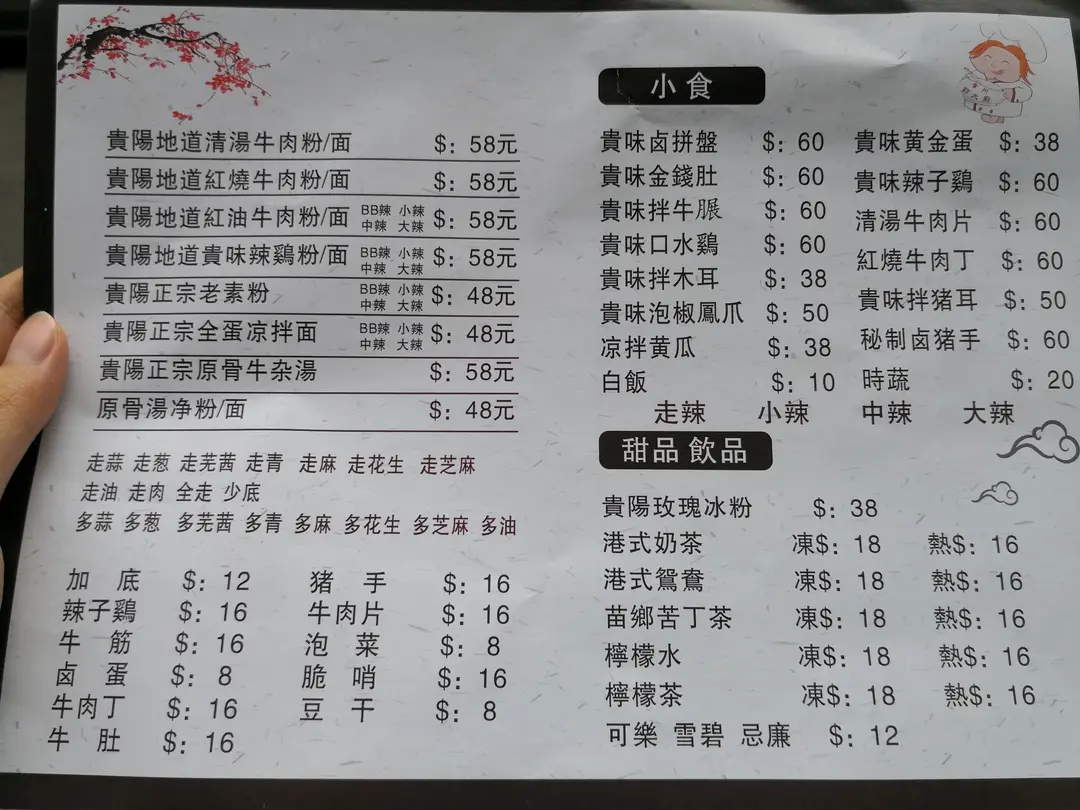 貴陽地道清湯牛肉粉/面 $: 58元
貴陽地道紅燒牛肉粉/面 $: 58元
貴陽地道紅油牛肉粉/面 BB辣 小辣 中辣 大辣 $: 58元
貴陽地道貴味辣鷄粉/面 BB辣 小辣 中辣 大辣 $: 58元
貴陽正宗老素粉 BB辣 小辣 中辣 大辣 $: 48元
貴陽正宗全蛋凉拌面 BB辣 小辣 中辣 大辣 $: 48元
貴陽正宗原骨牛杂湯 $: 58元
原骨湯净粉/面 $: 48元
走蒜 走葱 走芫茜 走青 走麻 走花生 走芝麻
走油 走肉 全走 少底
多蒜 多葱 多芫茜 多青 多麻 多花生 多芝麻 多油
加底 $: 12 猪手 $: 16
辣子鷄 $: 16 牛肉片 $: 16
牛筋 $: 16 泡菜 $: 8
卤蛋 $: 8 脆哨 $: 16
牛肉丁 $: 16 豆干 $: 8
牛肚 $: 16
小食
貴味卤拼盤 $: 60 貴味黄金蛋 $: 38
貴味金錢肚 $: 60 貴味辣子鷄 $: 60
貴味拌牛脤 $: 60 清湯牛肉片 $: 60
貴味口水鷄 $: 60 紅燒牛肉丁 $: 60
貴味拌木耳 $: 38 貴味拌猪耳 $: 50
貴味泡椒鳳爪 $: 50 秘制卤猪手 $: 60
凉拌黄瓜 $: 38 時蔬 $: 20
白飯 $: 10
走辣 小辣 中辣 大辣
甜品 飲品
貴陽玫瑰冰粉 $: 38
港式奶茶 凍$: 18 熱$: 16
港式鴛鴦 凍$: 18 熱$: 16
苗鄉苦丁茶 凍$: 18 熱$: 16
檸檬水 凍$: 18 熱$: 16
檸檬茶 凍$: 18 熱$: 16
可樂 雪碧 忌廉 $: 12